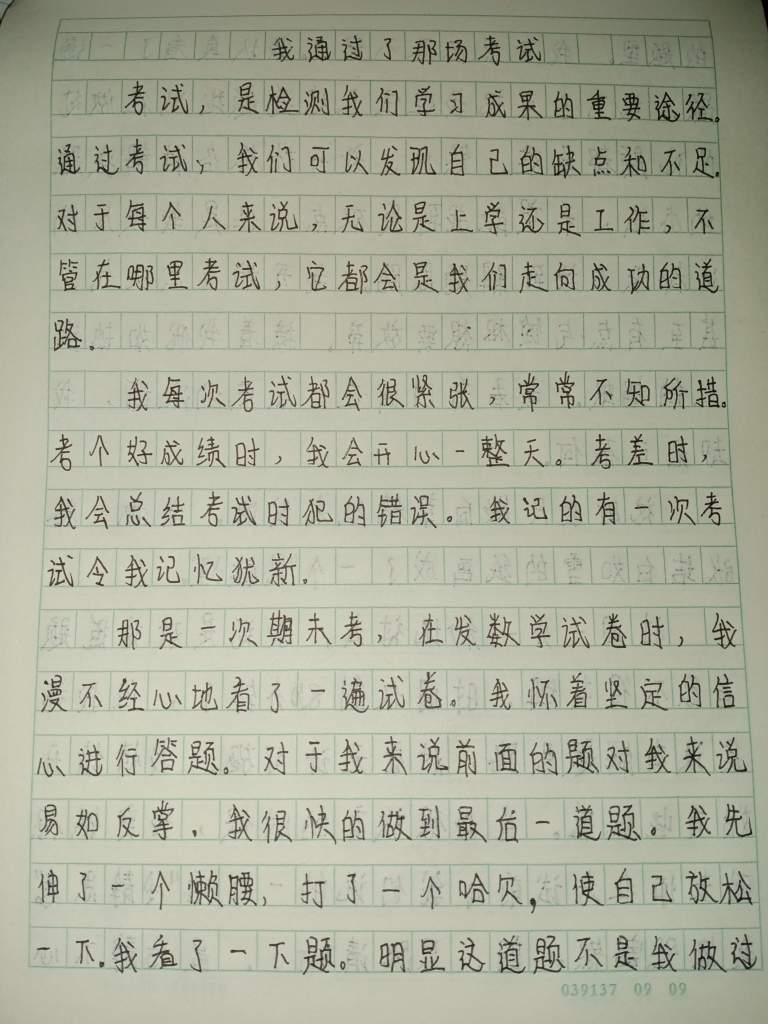 我通过了那场考试
考试，是检测我们学习成果的重要途径。
通过考试，我们可以发现自己的缺点和不足.
对于每个人来说，无论是上学还是工作，不
管在哪里考试，它都会是我们走向成功的道
路.
我每次考试都会很紧张，常常不知所措。
考个好成绩时，我会开心一整天。考差时，
我会总结考试时犯的错误。我记的有一次考
试令我记忆犹新.
那是一次期末考，在发数学试卷时，我
漫不经心地看了一遍试卷。我怀着坚定的信
心进行答题。对于我来说前面的题对我来说
易如反掌.我很快的做到最后一道题。我先
伸了一个懒腰，打了一个哈欠，使自己放松
一下.我看了一下题。明显这道题不是我做过
039137 09 09